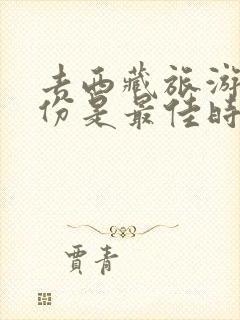 去西藏旅游
份是最佳时
贾青